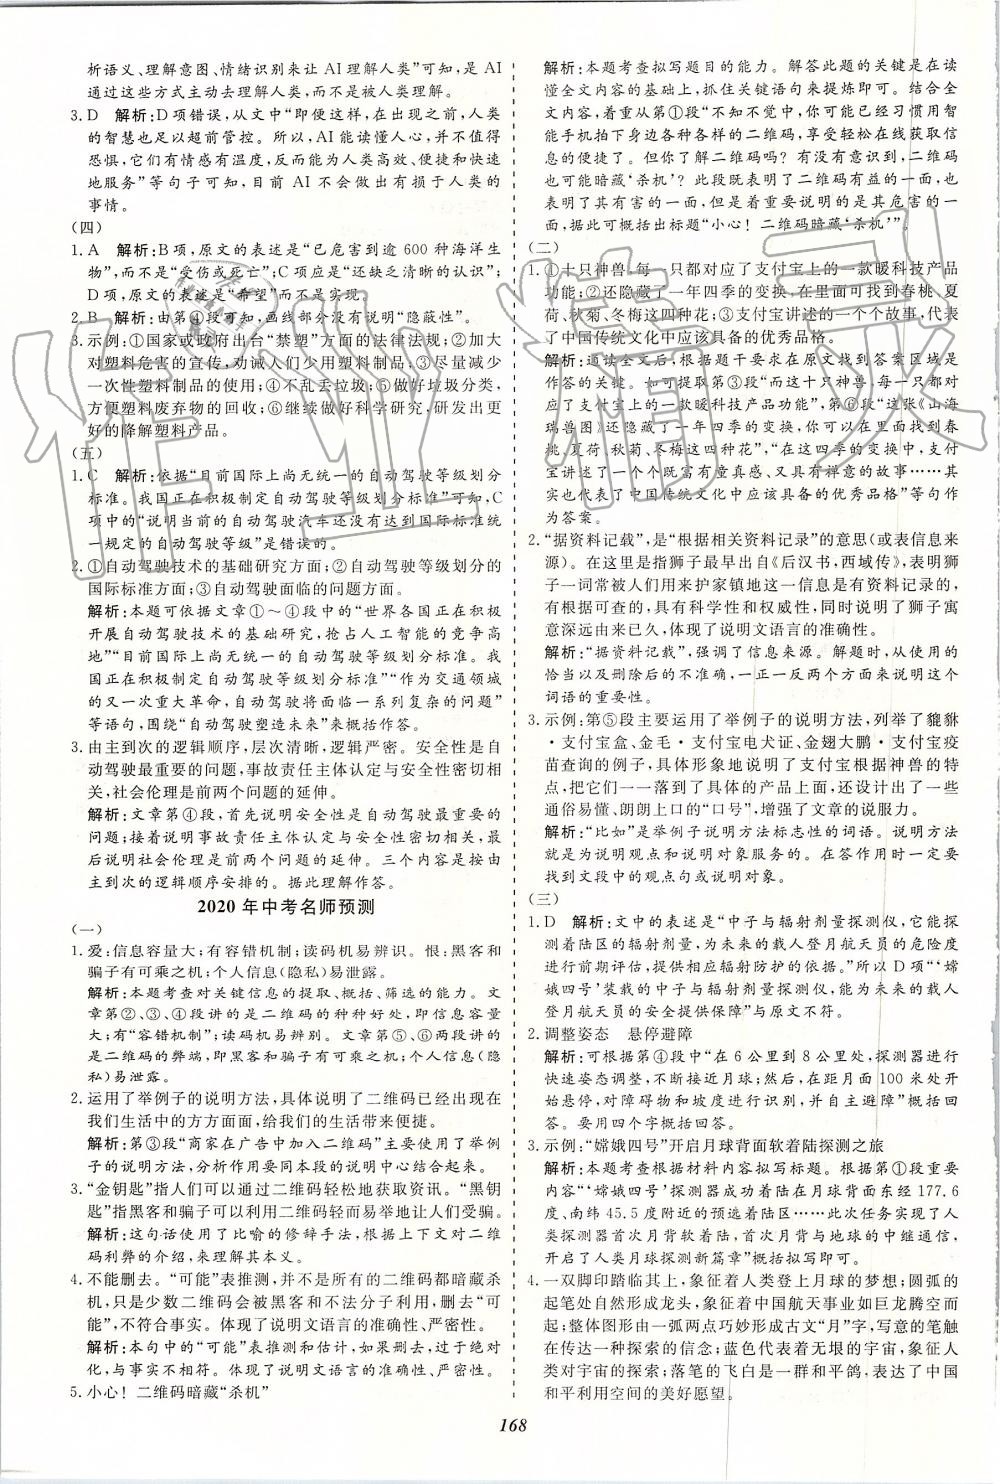 析语义、理解意图、情绪识别来让 AI 理解人类”可知,是 AI
通过这些方式主动去理解人类,而不是人类理解。
3. D　解析:D项错误,从文中“即便这样,在出现之前,人类
的智慧也足以超前管控。所以,AI能读懂人心,并不值得
恐惧,它们有情感有温度,能在人类高效、便捷和快速
地服务”等句子可知,目前 AI 不会做出有损于人类的
事情。
(四)
1. A　解析:B项,原文的表述是“已危害到逾 600 种海洋生
物”,而不是“受伤或死亡”;C项应是“还缺乏清晰的认识”;
D项,原文的表述是“希望”而不是实现。
2. B　解析:由第④段可知,画线部分没有说明“隐蔽性”。
3. 示例:①国家或政府出台“禁塑”方面的法律法规;②加大
对塑料危害的宣传,劝诫人们少用塑料制品;③尽量减少
一次性塑料制品的使用;④不乱丢垃圾;⑤做好垃圾分类,
方便塑料废弃物的回收;⑥继续做好科学研究,研发出更
好的降解塑料产品。
(五)
1. C　解析:依据“目前国际上尚无统一的自动驾驶等级划分
标准。我国正在积极制定自动驾驶等级划分标准”可知,C
项中的“说明当前的自动驾驶汽车还没有达到国际标准统
一规定的自动驾驶等级”是错误的。
2. ①自动驾驶技术的基础研究方面;②自动驾驶等级划分的
国际标准方面;③自动驾驶面临的问题方面。
解析:本题可依据文章①～④段中的“世界各国正在积极
开展自动驾驶技术的基础研究,抢占人工智能的竞争高
地”“目前国际上尚无统一的自动驾驶等级划分标准。我
国正在积极制定自动驾驶等级划分标准”“作为交通领域
的又一次重大革命,自动驾驶面临一系列复杂的问题”
等语句,围绕“自动驾驶塑造未来”来概括作答。
3. 由主到次的逻辑顺序,层次清晰,逻辑严密。安全性是自
动驾驶最重要的问题,事故责任主体认定与安全性密切相
关,社会伦理是前两个问题的延伸。
解析:文章第④段,首先说明安全性是自动驾驶最重要的
问题;接着说明事故责任主体认定与安全性密切相关,最
后说明社会伦理是前两个问题的延伸。三个内容是按由
主到次的逻辑顺序安排的。据此理解作答。
2020 年中考名师预测
(一)
1. 爱:信息容量大;有容错机制;读码机易辨识。恨:黑客和
骗子有可乘之机;个人信息(隐私)易泄露。
解析:本题考查对关键信息的提取、概括、筛选的能力。文
章第②、③、④段讲的是二维码的种种好处,例如信息容量
大;有“容错机制”;读码机易辨别。文章第⑤、⑥两段讲的
是二维码的弊端,即黑客和骗子有可乘之机;个人信息(隐
私)易泄露。
2. 运用了举例子的说明方法,具体说明了二维码已经出现在
我们生活中的方方面面,给我们的生活带来便捷。
解析:第③段“商家在广告中加入二维码”主要使用了举例
子的说明方法,分析作用要同本段的说明中心结合起来。
3. “金钥匙”指人们可以通过二维码轻松地获取资讯。“黑钥
匙”指黑客和骗子可以利用二维码轻而易举地让人们受骗。
解析:这句话使用了比喻的修辞手法,根据上下文对二维
码利弊的介绍,来理解其本义。
4. 不能删去。“可能”表推测,并不是所有的二维码都暗藏杀
机,只是少数二维码会被黑客和不法分子利用,删去“可
能”,不符合事实。体现了说明文语言的准确性、严密性。
解析:本句中的“可能”表推测和估计,如果删去,过于绝
对,与事实不相符。体现了说明文语言的准确性、严密性。
5. 小心! 二维码暗藏“杀机”
解析:本题考查拟写题目的能力。解答此题的关键是在读
懂全文内容的基础上,抓住关键语句来提炼即可。结合全
文内容,着重从第①段“不知不觉中,你可能已经习惯用智
能手机拍下身边各种各样的二维码,享受轻松在线获取信
息的便捷了。但你了解二维码吗? 有没有意识到,二维码
也可能暗藏‘杀机’? 此段既表明了二维码有益的一面,也
表明了其有害的一面,但是着重要说明的是其有危害的一
面,据此可概括出标题“小心! 二维码暗藏‘杀机’”。
(二)
1. ①十只神兽,每一只都对应了支付宝上的一款暖科技产品
功能;②还隐藏了一年四季的变换,在里面可找到春桃、夏
荷、秋菊、冬梅这四种花;③支付宝讲述的一个个故事,代表
了中国传统文化中应该具备的优秀品格。
解析:通读全文后,根据题干要求在原文找到答案区域是
作答的关键。如可提取第③段“而这十只神兽,每一只都对
应了支付宝上的一款暖科技产品功能”,第⑥段“这张《山海
瑞兽图》还隐藏了一年四季的变换,你可以在里面找到
春桃、夏荷、秋菊、冬梅这四种花”“在这四季的变换中,支付
宝讲述了一个个既富有童真感,又具有禅意的故事……代
表了中国传统文化中应该具备的优秀品格”等句作
为答案。
2. “据资料记载”,是“根据相关资料记录”的意思(或表信息来
源)。在这里是指狮子最早出现在《后汉书,西域传》,表明狮
子一词常被人们用来护家镇地这一信息是有资料记录的,
有根据可查的,具有科学性和权威性,同时说明了狮子寓
意深远由来已久,体现了说明文语言的准确性。
解析:“据资料记载”,强调了信息来源。解题时,从使用的
恰当以及删除后的不准确,一正一反两方面来说明这个
词语的重要性。
3. 示例:第⑤段主要运用了举例子的说明方法,列举了貔貅
·支付宝盒、金毛·支付宝电犬证、金翅大鹏·支付宝疫
苗查询的例子,具体形象地说明了支付宝根据神兽的特
点,把它们一一落到了具体的产品上面,还设计出了一些
通俗易懂、朗朗上口的“口号”,增强了文章的说服力。
解析:“比如”是举例子说明方法标志性的词语。说明方法
就是为说明观点和说明对象服务的。在答作用时一定要
找到文段中的观点句或说明对象。
(三)
1. D　解析:文中的表述是“中子与辐射剂量探测仪,它能探
测着陆区的辐射剂量,为未来的载人登月航天员的危险度
进行前期评估,提供相应辐射防护的依据。”所以 D 项“‘嫦
娥四号’装载的中子与辐射剂量探测仪,能为未来的载人
登月航天员的安全提供保障”与原文不符。
2. 调整姿态　悬停避障
解析:可根据第④段中“在 6 公里到 8 公里处,探测器进行
快速姿态调整,不断接近月球;然后,在距月面 100 米处开
始悬停,对障碍物和坡度进行识别,并自主避障”概括回
答。要用四个字概括回答。
3. 示例:“嫦娥四号”开启月球背面软着陆探测之旅
解析:本题考查根据材料内容拟写标题。根据第①段重要
内容“‘嫦娥四号’探测器成功着陆在月球背面东经 177.6
度、南纬 45.5 度附近的预选着陆区……此次任务实现了人
类探测器首次月背软着陆、首次月背与地球的中继通信,
开启了人类月球探测新篇章”概括拟写即可。
4. 一双脚印踏临其上,象征着人类登上月球的梦想;圆弧的
起笔处自然形成龙头,象征着中国航天事业如巨龙腾空而
起;整体图形由一弧两点巧妙形成古文“月”字,写意的笔触
在传达着探索的信念;蓝色代表着无垠的宇宙,象征着人
类对宇宙的探索;落笔的飞白是一群和平鸽,表达了中国
和平利用空间的美好愿望。
168